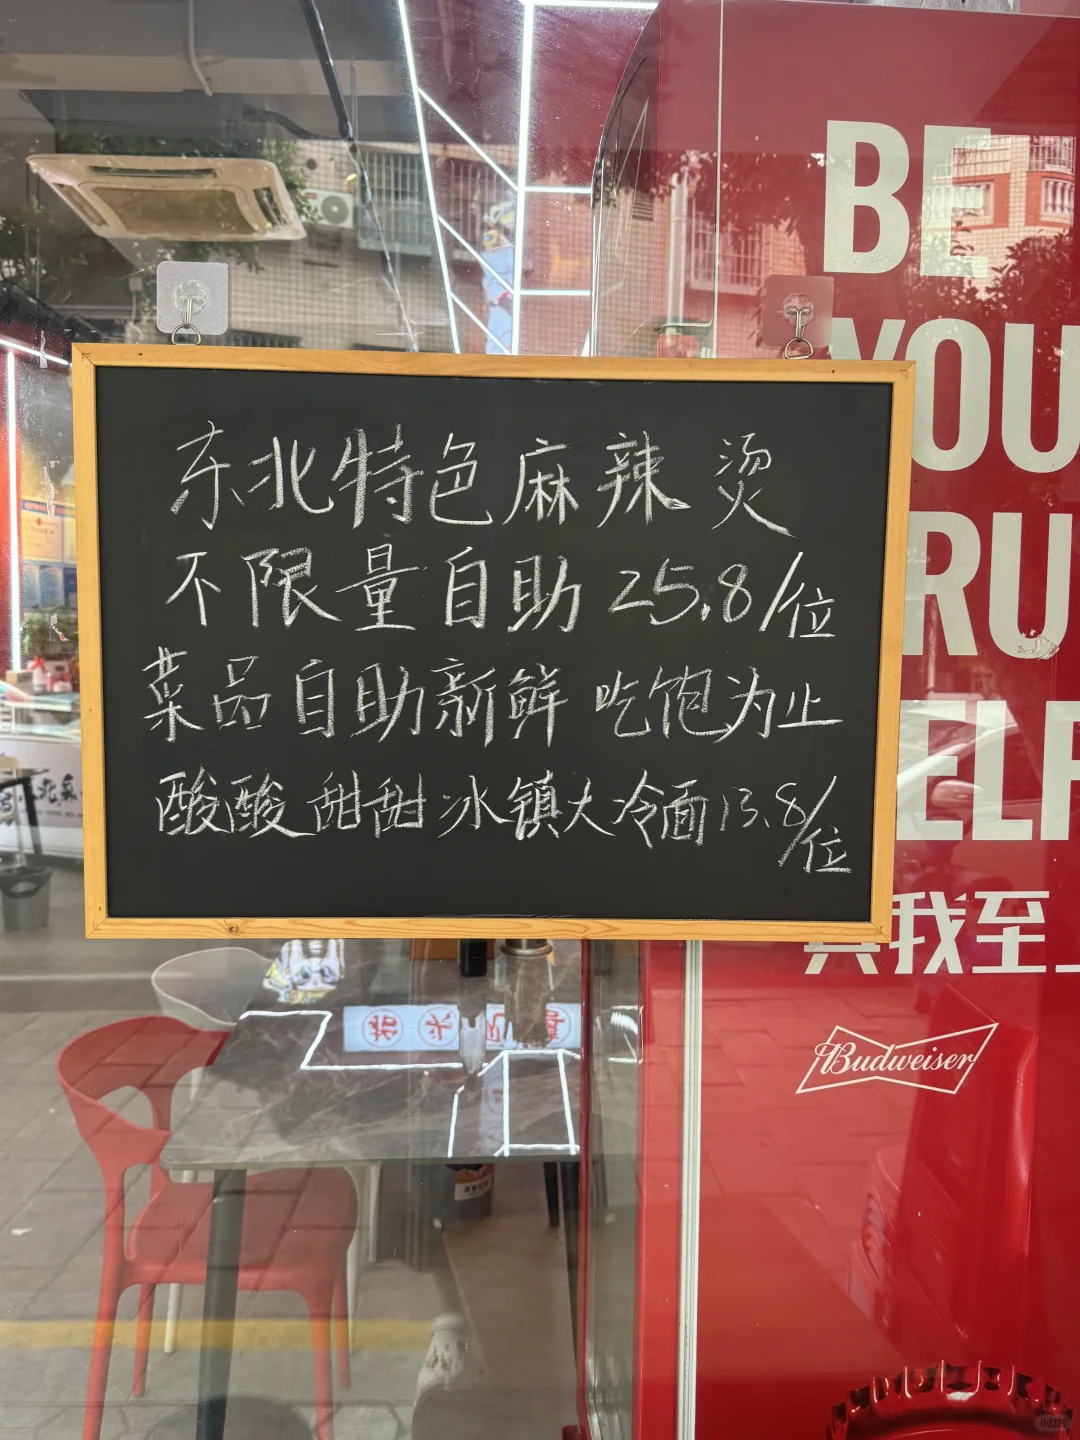 东北特色麻辣烫
不限量自助25.8/位
菜品自助新鲜 吃饱为止
酸酸甜甜冰镇大冷面13.8/位
BE
YOU
RU
ELF
我至
Budweiser